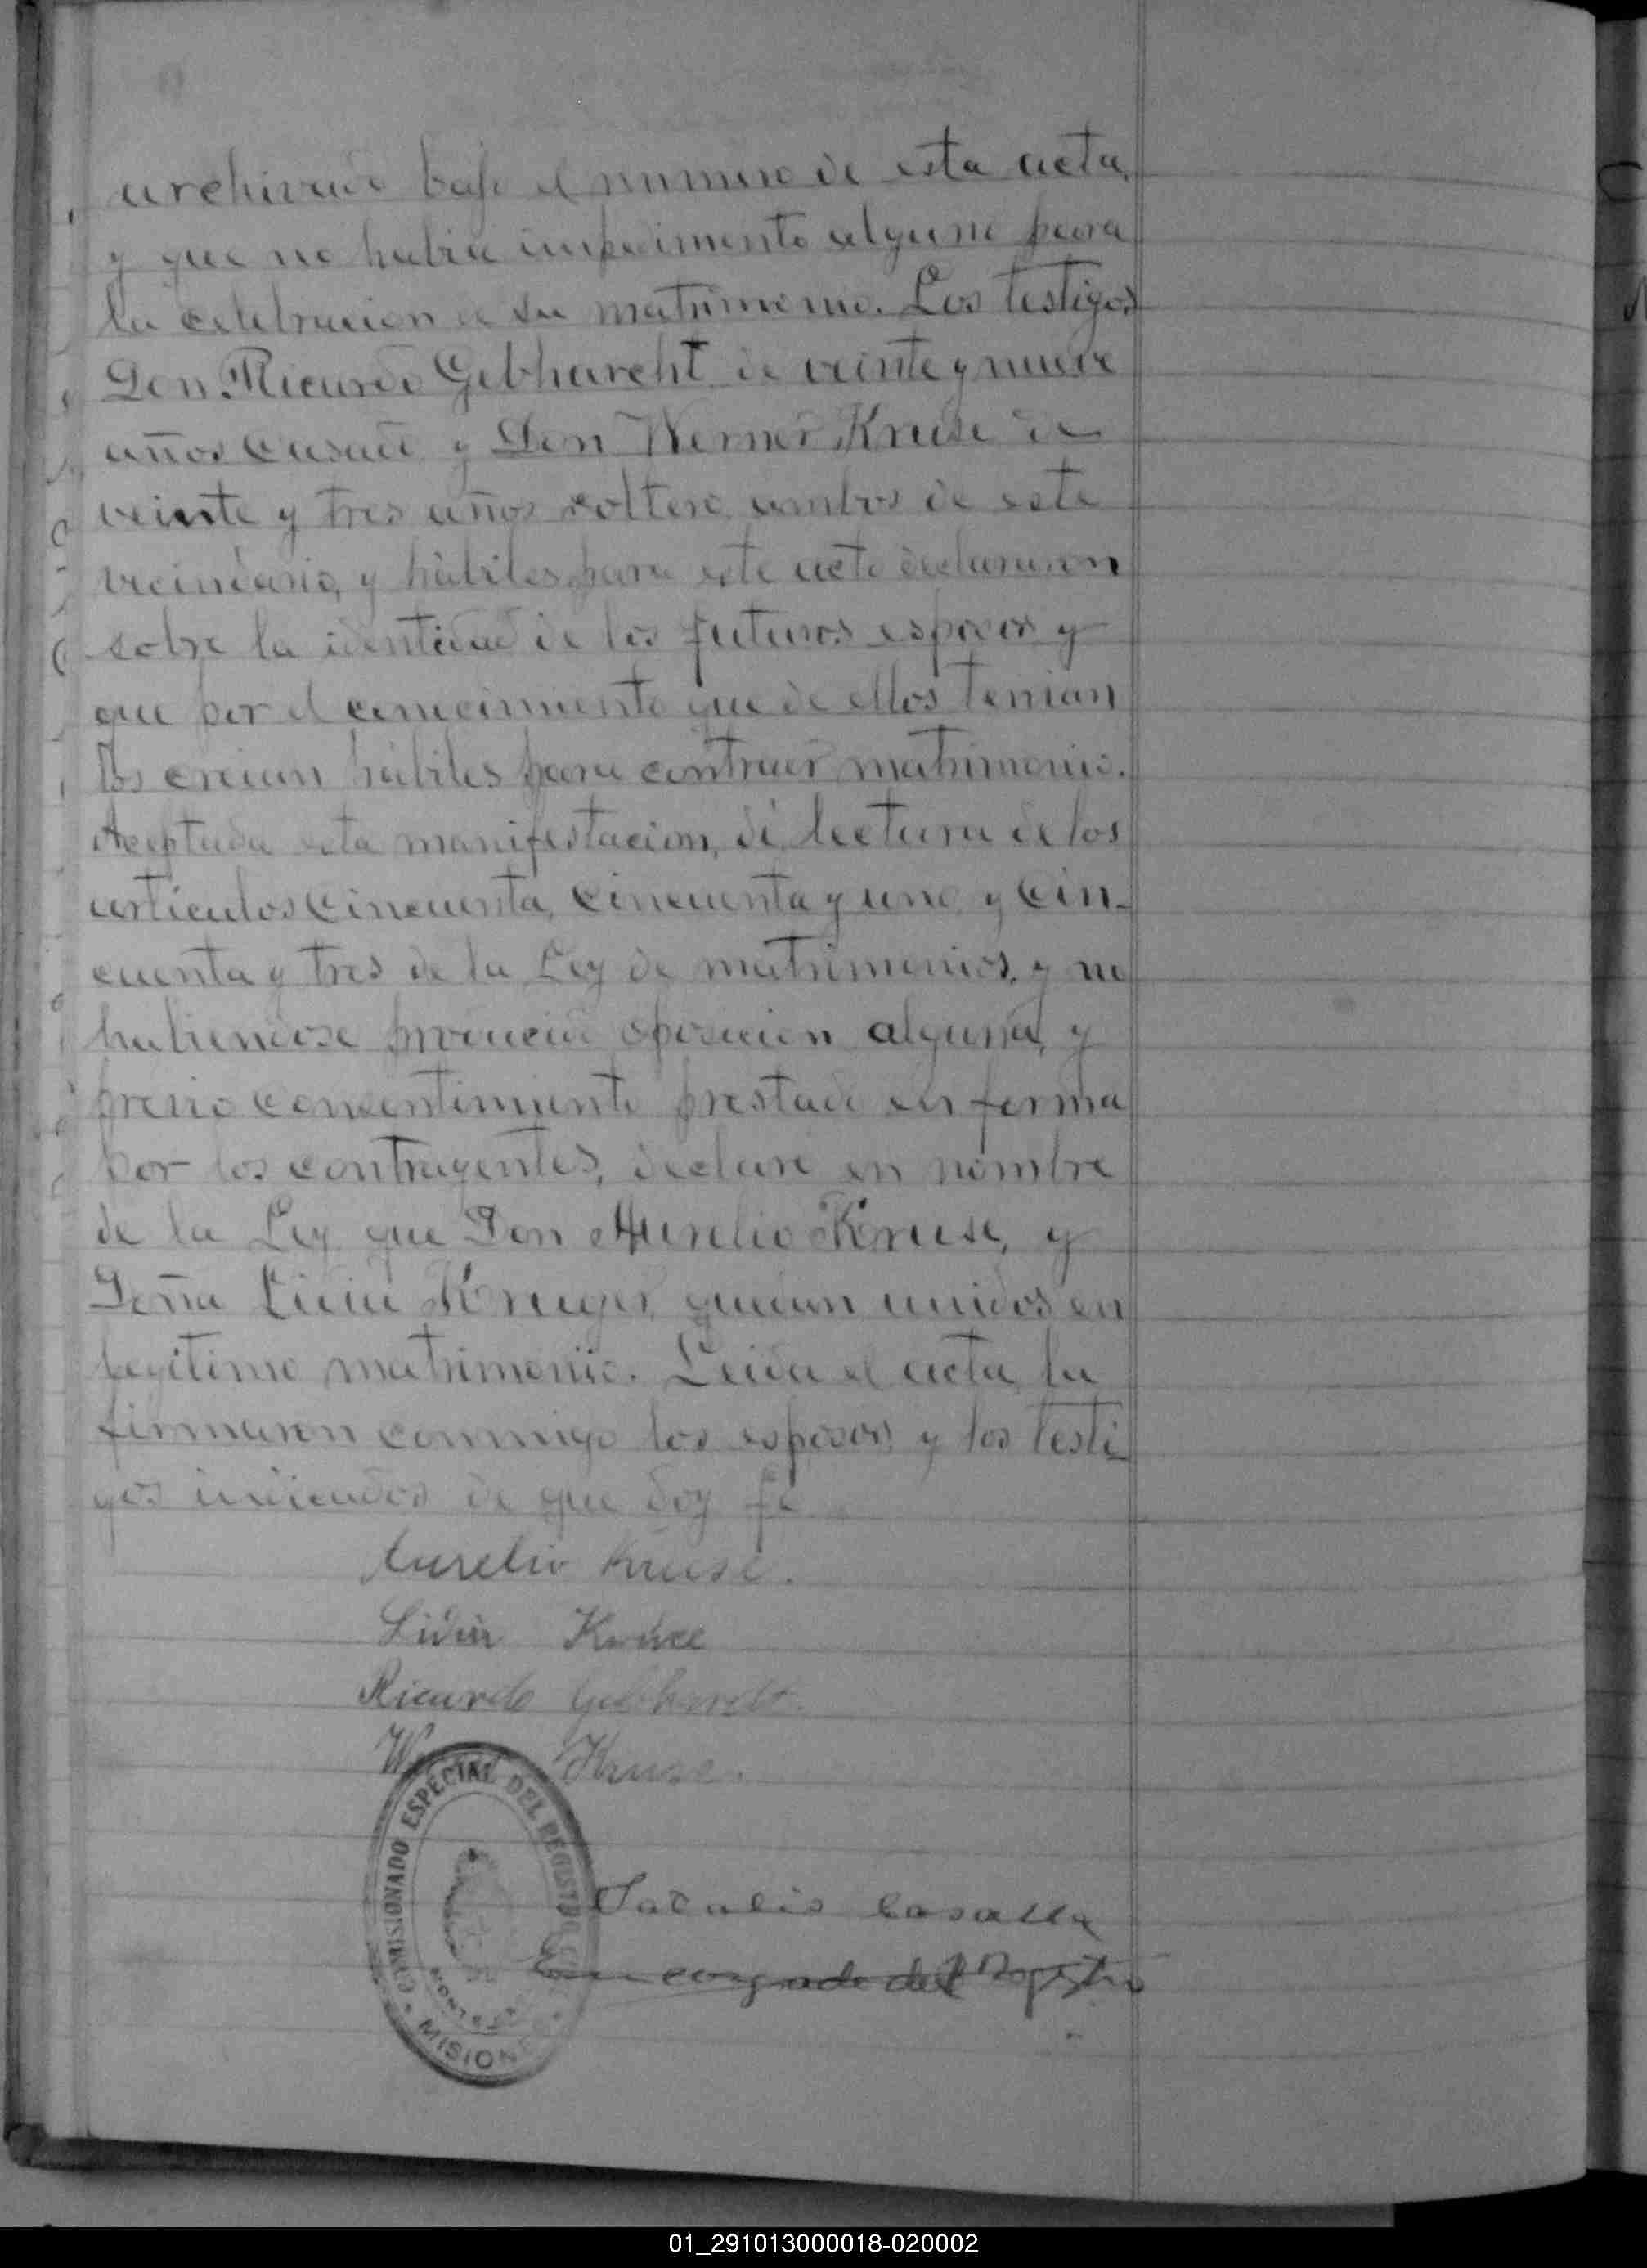 archivado bajo el numero de esta acta,
y que no habia impedimento alguno para
la celebracion de su matrimonio. Los testigos
Don Ricardo Gebharcht de veinte y nueve
años casado y Don Werner Kruse de
veinte y tres años soltero, ambos de este
vecindario, y hàbiles para este acto declararon
sobre la identidad de los futuros esposos y
que por el conocimiento que de ellos tenian
los creian hábiles para contraer matrimonio.
Aceptada esta manifestacion, dí lectura de los
articulos cincuenta, cincuenta y uno y cin-
cuenta y tres de la Ley de matrimonios, y no
habiendose producido oposicion alguna, y
previo consentimiento prestado en forma
por los contrayentes, declaré en nombre
de la Ley que Don Aurelio Kruse, y
Doña Lidia Kruger, quedan unidos en
legitimo matrimonio. Leida el acta, la
firmaron conmigo los esposos y los testi-
gos indicados de que doy fé
Aurelio Kruse.
Lidia
Ricardo Gebhardt.
W Kruse.
COMISIONADO ESPECIAL DEL REGISTRO CIVIL
MISIONES
Casalla
Encargado del Registro
01_291013000018-020002